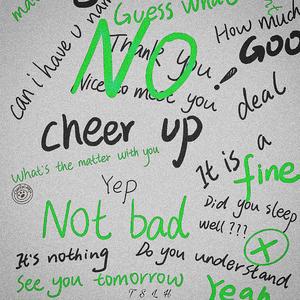 Guess what
can i have u nam
NO!
Thank you
Nice to meet you
How much
Goo
deal
cheer up
What's the matter with you
Yep
It is a
fine
Not bad
Did you sleep
well ???
It's nothing
Do you understand
See you tomorrow
Yeah